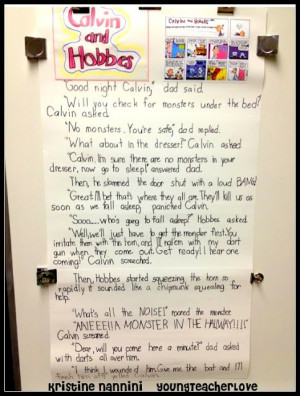 Calvin
and
Hobbes
Calvin and Hobbes
"Good night Calvin," dad said.
"Will you check for monsters under the bed?"
Calvin asked.
"No monsters. You're safe," dad replied.
"What about in the dresser?" Calvin asked.
"Calvin, I'm sure there are no monsters in your
dresser, now go to sleep!" answered dad.
Then, he slammed the door shut with a loud BANG!
"Great! I bet that's where they all are. They'll kill us as
soon as we fall asleep," panicked Calvin.
"Sooo.....who's going to fall asleep?" Hobbes asked.
"Well, we'll just have to get the monster first. You
irritate them with the horn, and I'll nail em with my dart
gun when they come out. Get ready! I hear one
coming!" Calvin screeched.
Then, Hobbes started squeezing the horn so
rapidly it sounded like a chipmunk squealing for
help.
"What's all the NOISE!" roared the monster.
"ANEEEIIA MONSTER IN THE HALLWAY!!!!"
Calvin screamed.
"Dear, will you come here a minute?" dad asked
with darts all over him.
"I think I wounded him. Give me the bat and I'll
finish him off!" yelled Calvin.
Kristine Nannini youngteacherlove